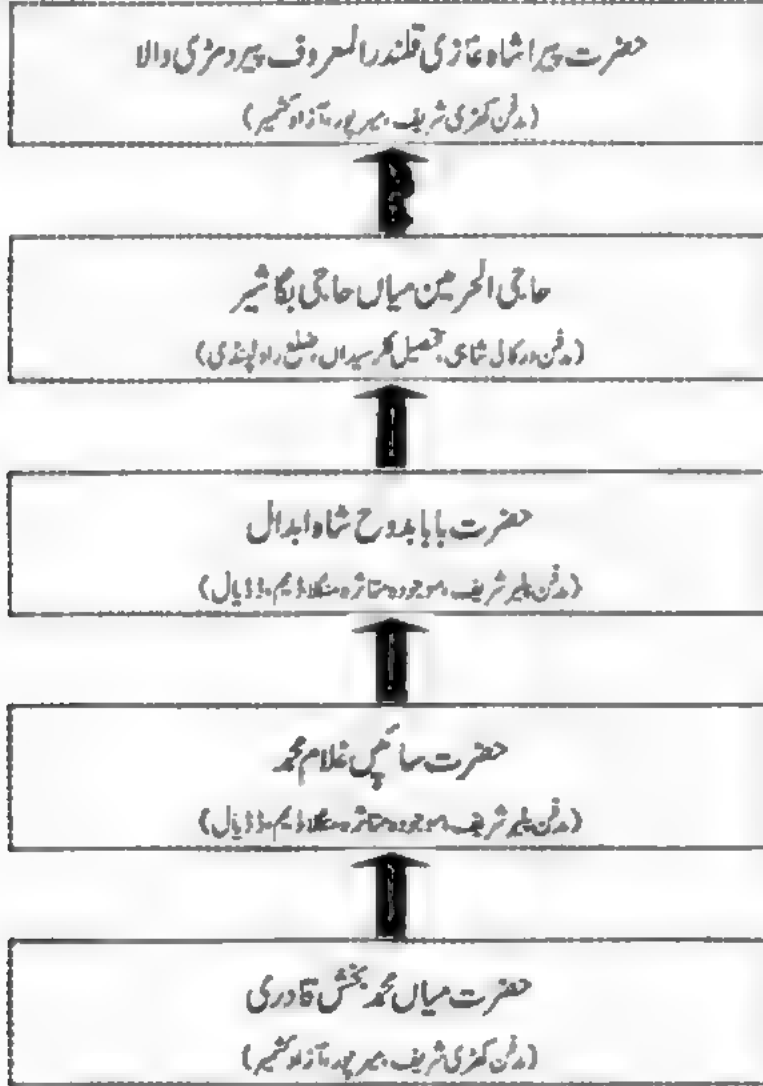 حضرت پیرا شاہ غازی قلندر المعروف پیر دمڑی والا
(مدفن کھڑی شریف، میر پور، آزاد کشمیر)
حاجی الحرمین میاں حاجی بگا شیر
(مدفن درکالی شاہی، تحصیل کلر سیداں، ضلع راولپنڈی)
حضرت بابا بدوح شاہ ابدال
(مدفن پلیر شریف، موجودہ متاثرہ منگلا ڈیم، ڈڈیال)
حضرت سائیں غلام محمد
(مدفن پلیر شریف، موجودہ متاثرہ منگلا ڈیم، ڈڈیال)
حضرت میاں محمد بخش قادری
(مدفن کھڑی شریف، میر پور، آزاد کشمیر)